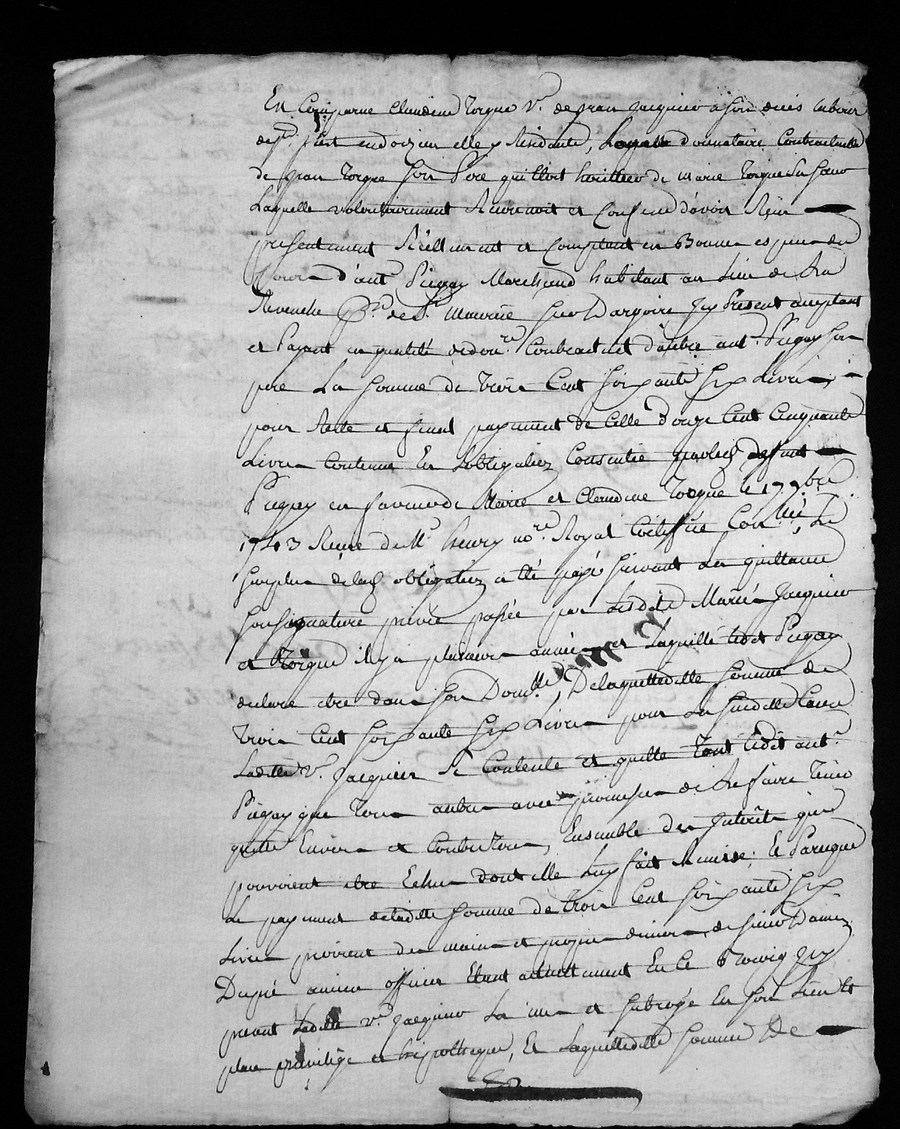 En Comparue Claudine Torgue v.e de jean jacquier
elle y Residante, Laquelle donnataire Contractuelle
de jean Torgue son Pere qui Etoit heritier de marie Torgue sa soeur
Laquelle volontairement Reconnoit et Confesse d'avoir Reçu
presentement Réellement et Comptant en Bonnes especes du
d'ant.e Pugay Marchand habitant au lieu de La
Revenche P.sse de S.t Maurice sur Dargoire Icy Present acceptant
et Payant en qualité de Contractuel ant.e Pugay son
pere La somme de Trois Cent soixante six Livres,
pour Reste et final payment de Celle d'onze Cent Cinquante
Livres Contenue En Lobligation Consentie par led.t deffunt
Pugay en faveur de Marie et Claudine Torgue le 17 9bre
1743 Reçue de M.e henry no.re Royal
surplus de lad. obligation a été payé suivant la quittance
sous signature privée passée par Marie jacquier
et Torgue il y a plusieurs années et Laquelle ledit Pugay
declare etre dans son Dom.lle, De laquelle ditte somme de
Trois Cent soixante six Livres pour La susditte Cause
Laditte v.e jacquier se Contente et quitte Tant ledit ant.e
Pugay que Tous autres avec promesse de Les faire Tenir
quitte Envers et Contre Tous, Ensemble des Interêts qui
pouvoient etre Echus dont elle Luy fait Remise; Et Parceque
Le payment de laditte somme de trois Cent soixante six
Livres provient des mains et propres deniers de sieur
Dupré ancien officier Etant actuellement En Ce Icy
present Laditte v.e jacquier La mis et subrogé En son Lieu et
place privilège et hipotheque, Et Laquelle ditte somme De